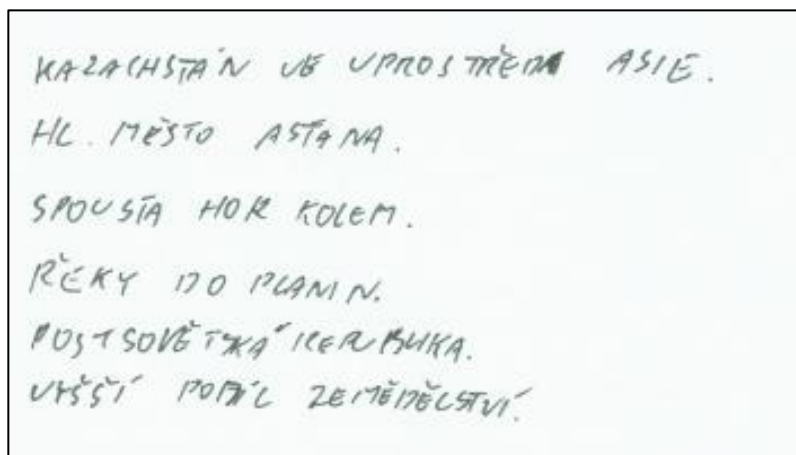 KAZACHSTÁN VE UPROSTŘEDA ASIE.
HL. MĚSTO ASTANA.
SPOUSTA HOR KOLEM.
ŘEKY DO PLANIN.
POSTSOVĚTSKÁ REPUBLIKA.
VYŠŠÍ PODÍL ZEMĚDĚLSTVÍ.